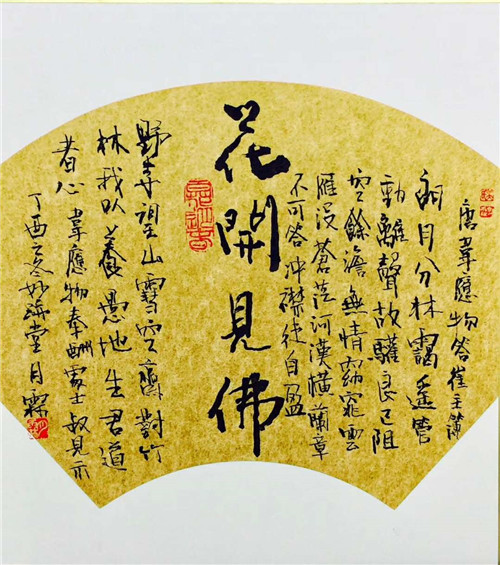 唐韋應物答崔主簿
朗月分林靄遙管
動離聲故驩良已阻
空餘澹無情窈窕雲
雁没蒼茫河漢橫蘭章
不可答沖襟徒自盈
花開見佛
野寺望山雪空齋對竹
林我以養愚地生君道
者心韋應物奉酬處士叔見示
丁酉之冬妙堂月霖